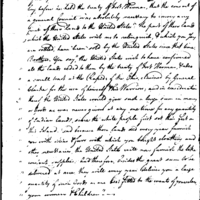 they before in hold the treaty of Fort Wayne, that the consent of
a general council was absolutely necessary to convey any
part of their lands to the United States. The part of these lands
which the United States wish us to exchange, & which you say
are settled have been sold by the United States since that time
Brothers You say, the United States wish to have confirmed
all the lands ceded to them by the treaty of Fort Harmar, also
a small tract at the Rapids of the Ohio, claimed by General
Clark for the use of himself & his Warriors, and in consideration
thereof, the United States would give such a large sum in money
or goods as was never given at any one time for any quantity
of Indian lands, since the white people first set their feet on
this Island. and because these lands did every year furnish
you with skins & furs with which you bought clothing and
other necessaries, the United States will now furnish the like
constant supplies. And therefore, besides the great sum to be
delivered at once, they will every year deliver you a large
quantity of such goods as are best fitted to the wants of yourselves
your women & Children."